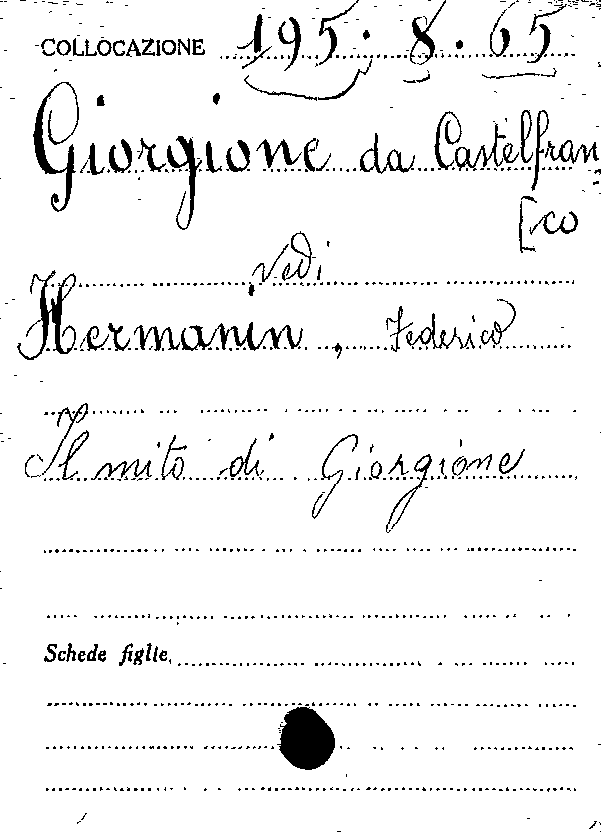 COLLOCAZIONE 195.8.65
Giorgione da Castelfran=
[co
Vedi
Hermanin, Federico
Il mito di Giorgione
Schede figlie